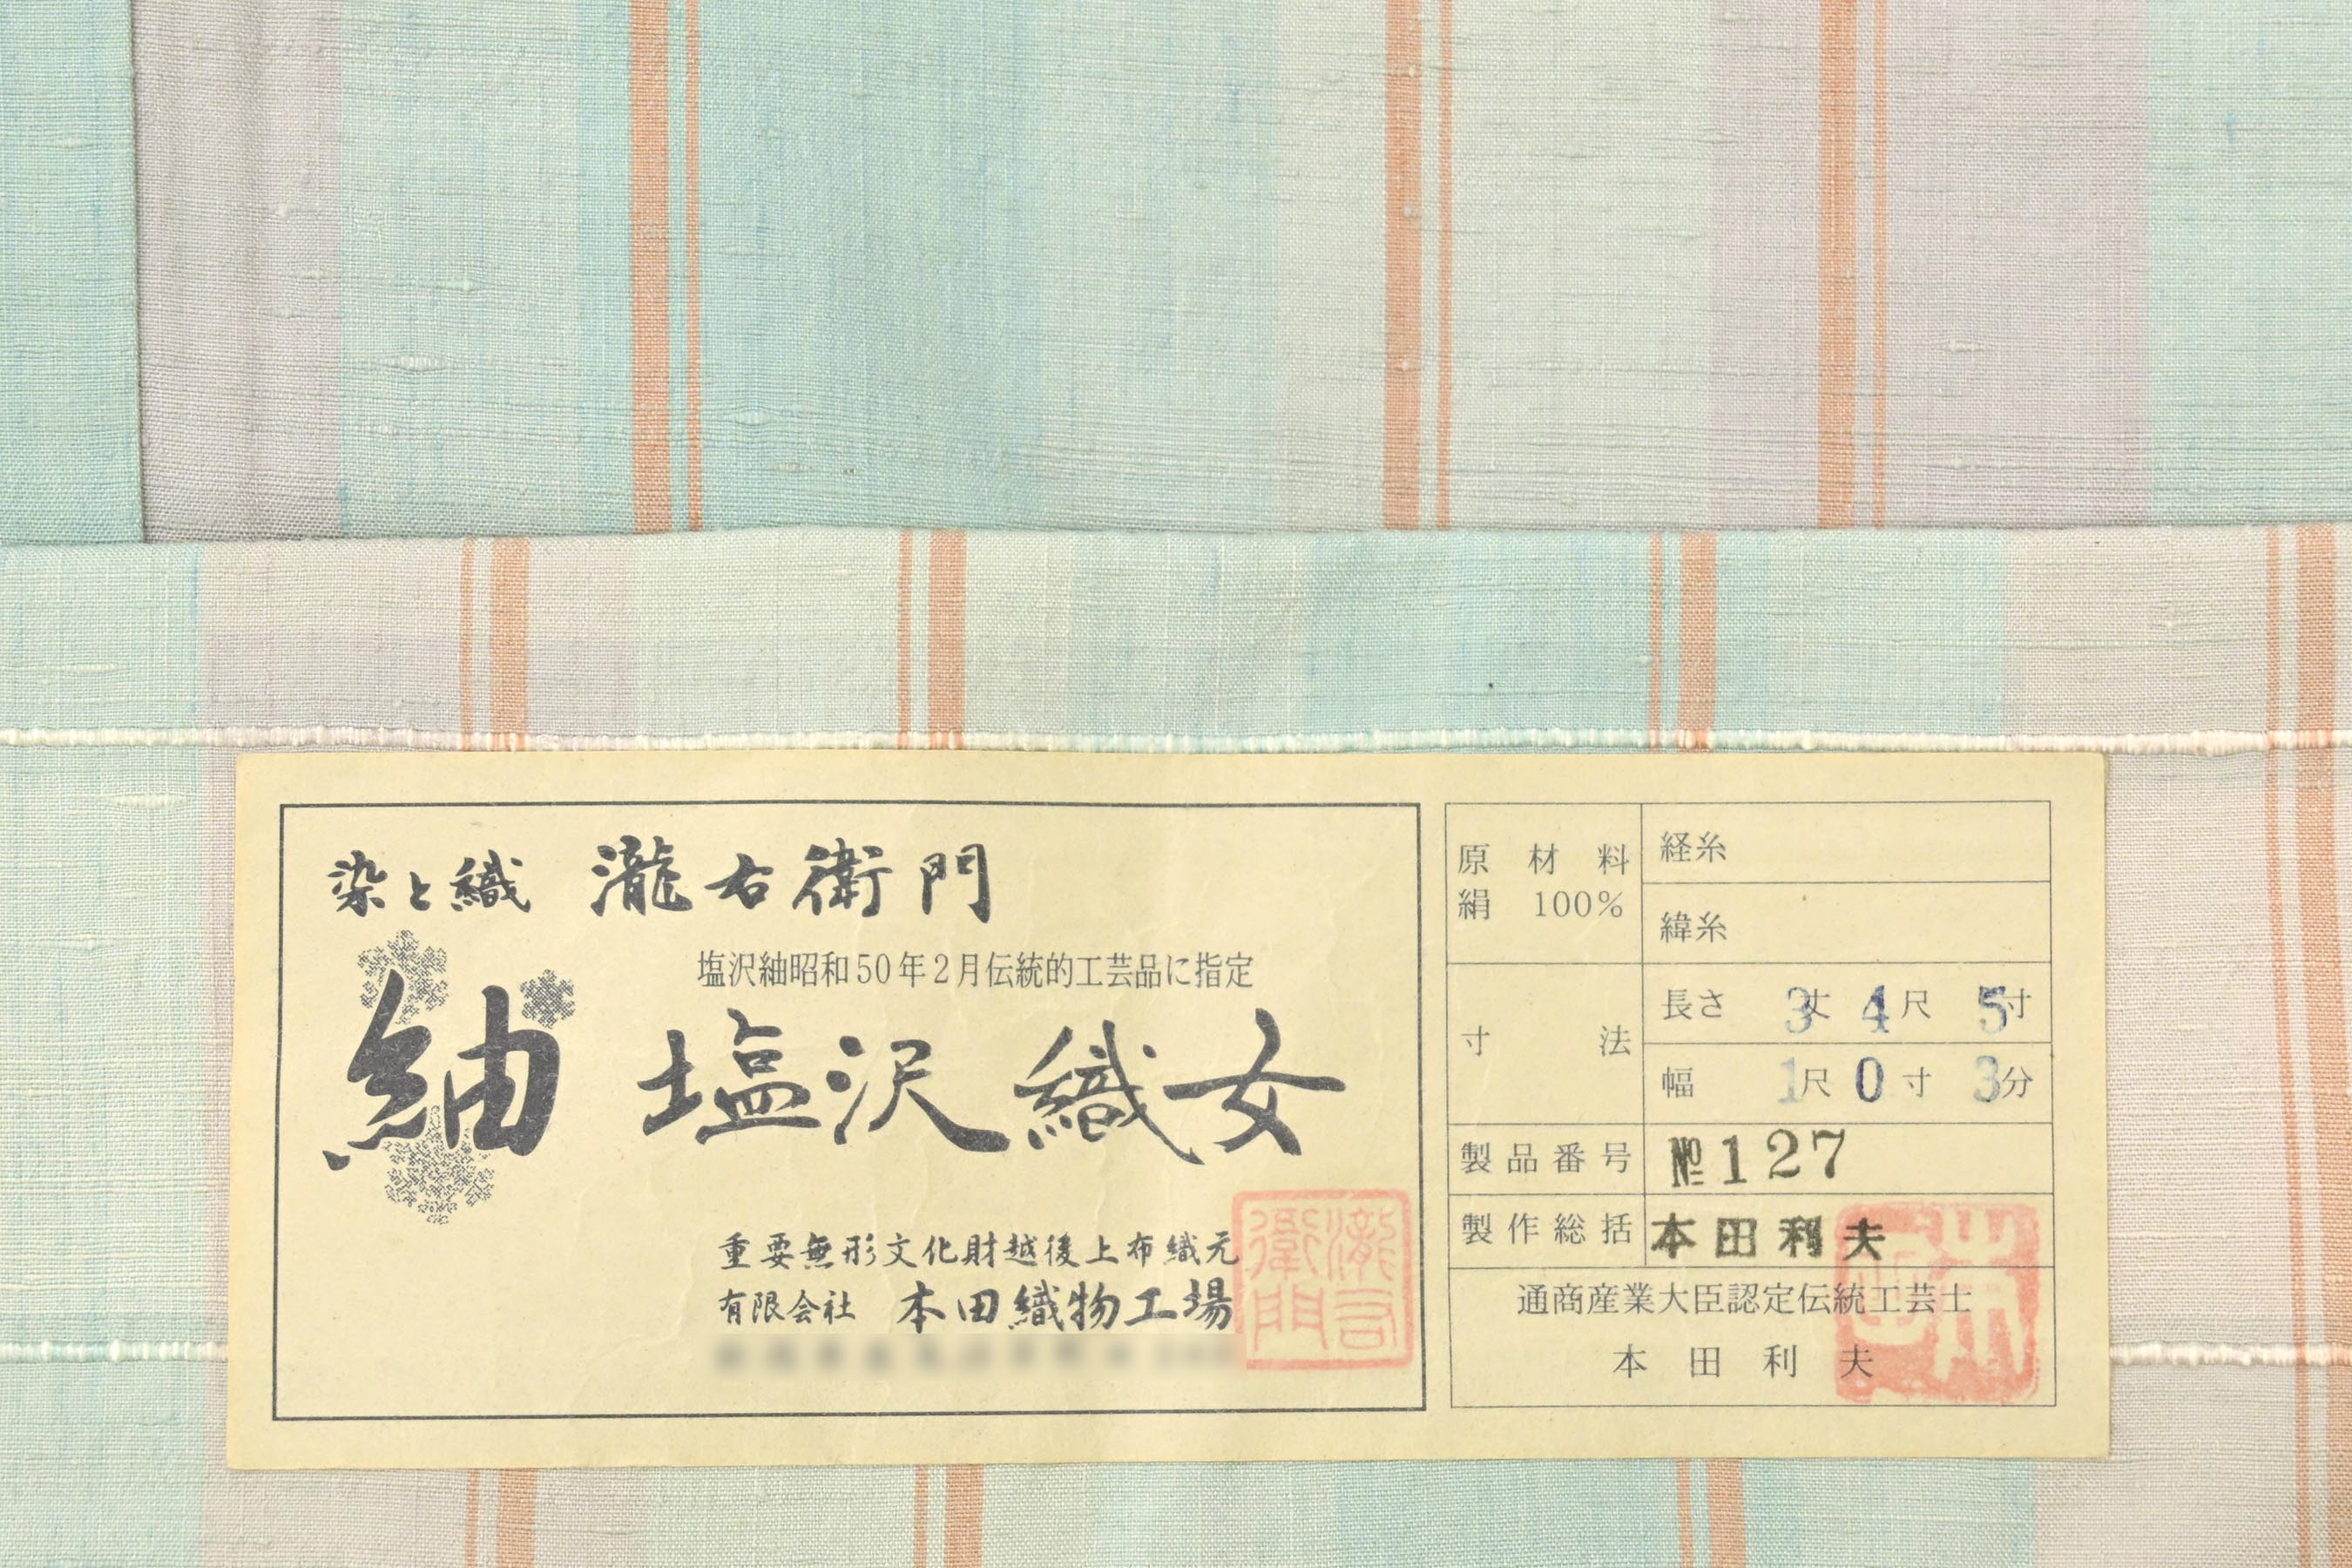 染と織 瀧右衛門
塩沢紬昭和50年2月伝統的工芸品に指定
紬 塩沢織女
重要無形文化財越後上布織元
有限会社 本田織物工場
瀧右衛門
原材料
絹 100%
経糸
緯糸
寸法
長さ 3丈 4尺 5寸
幅 1尺 0寸 3分
製品番号 №127
製作総括 本田利夫
通商産業大臣認定伝統工芸士
本田利夫